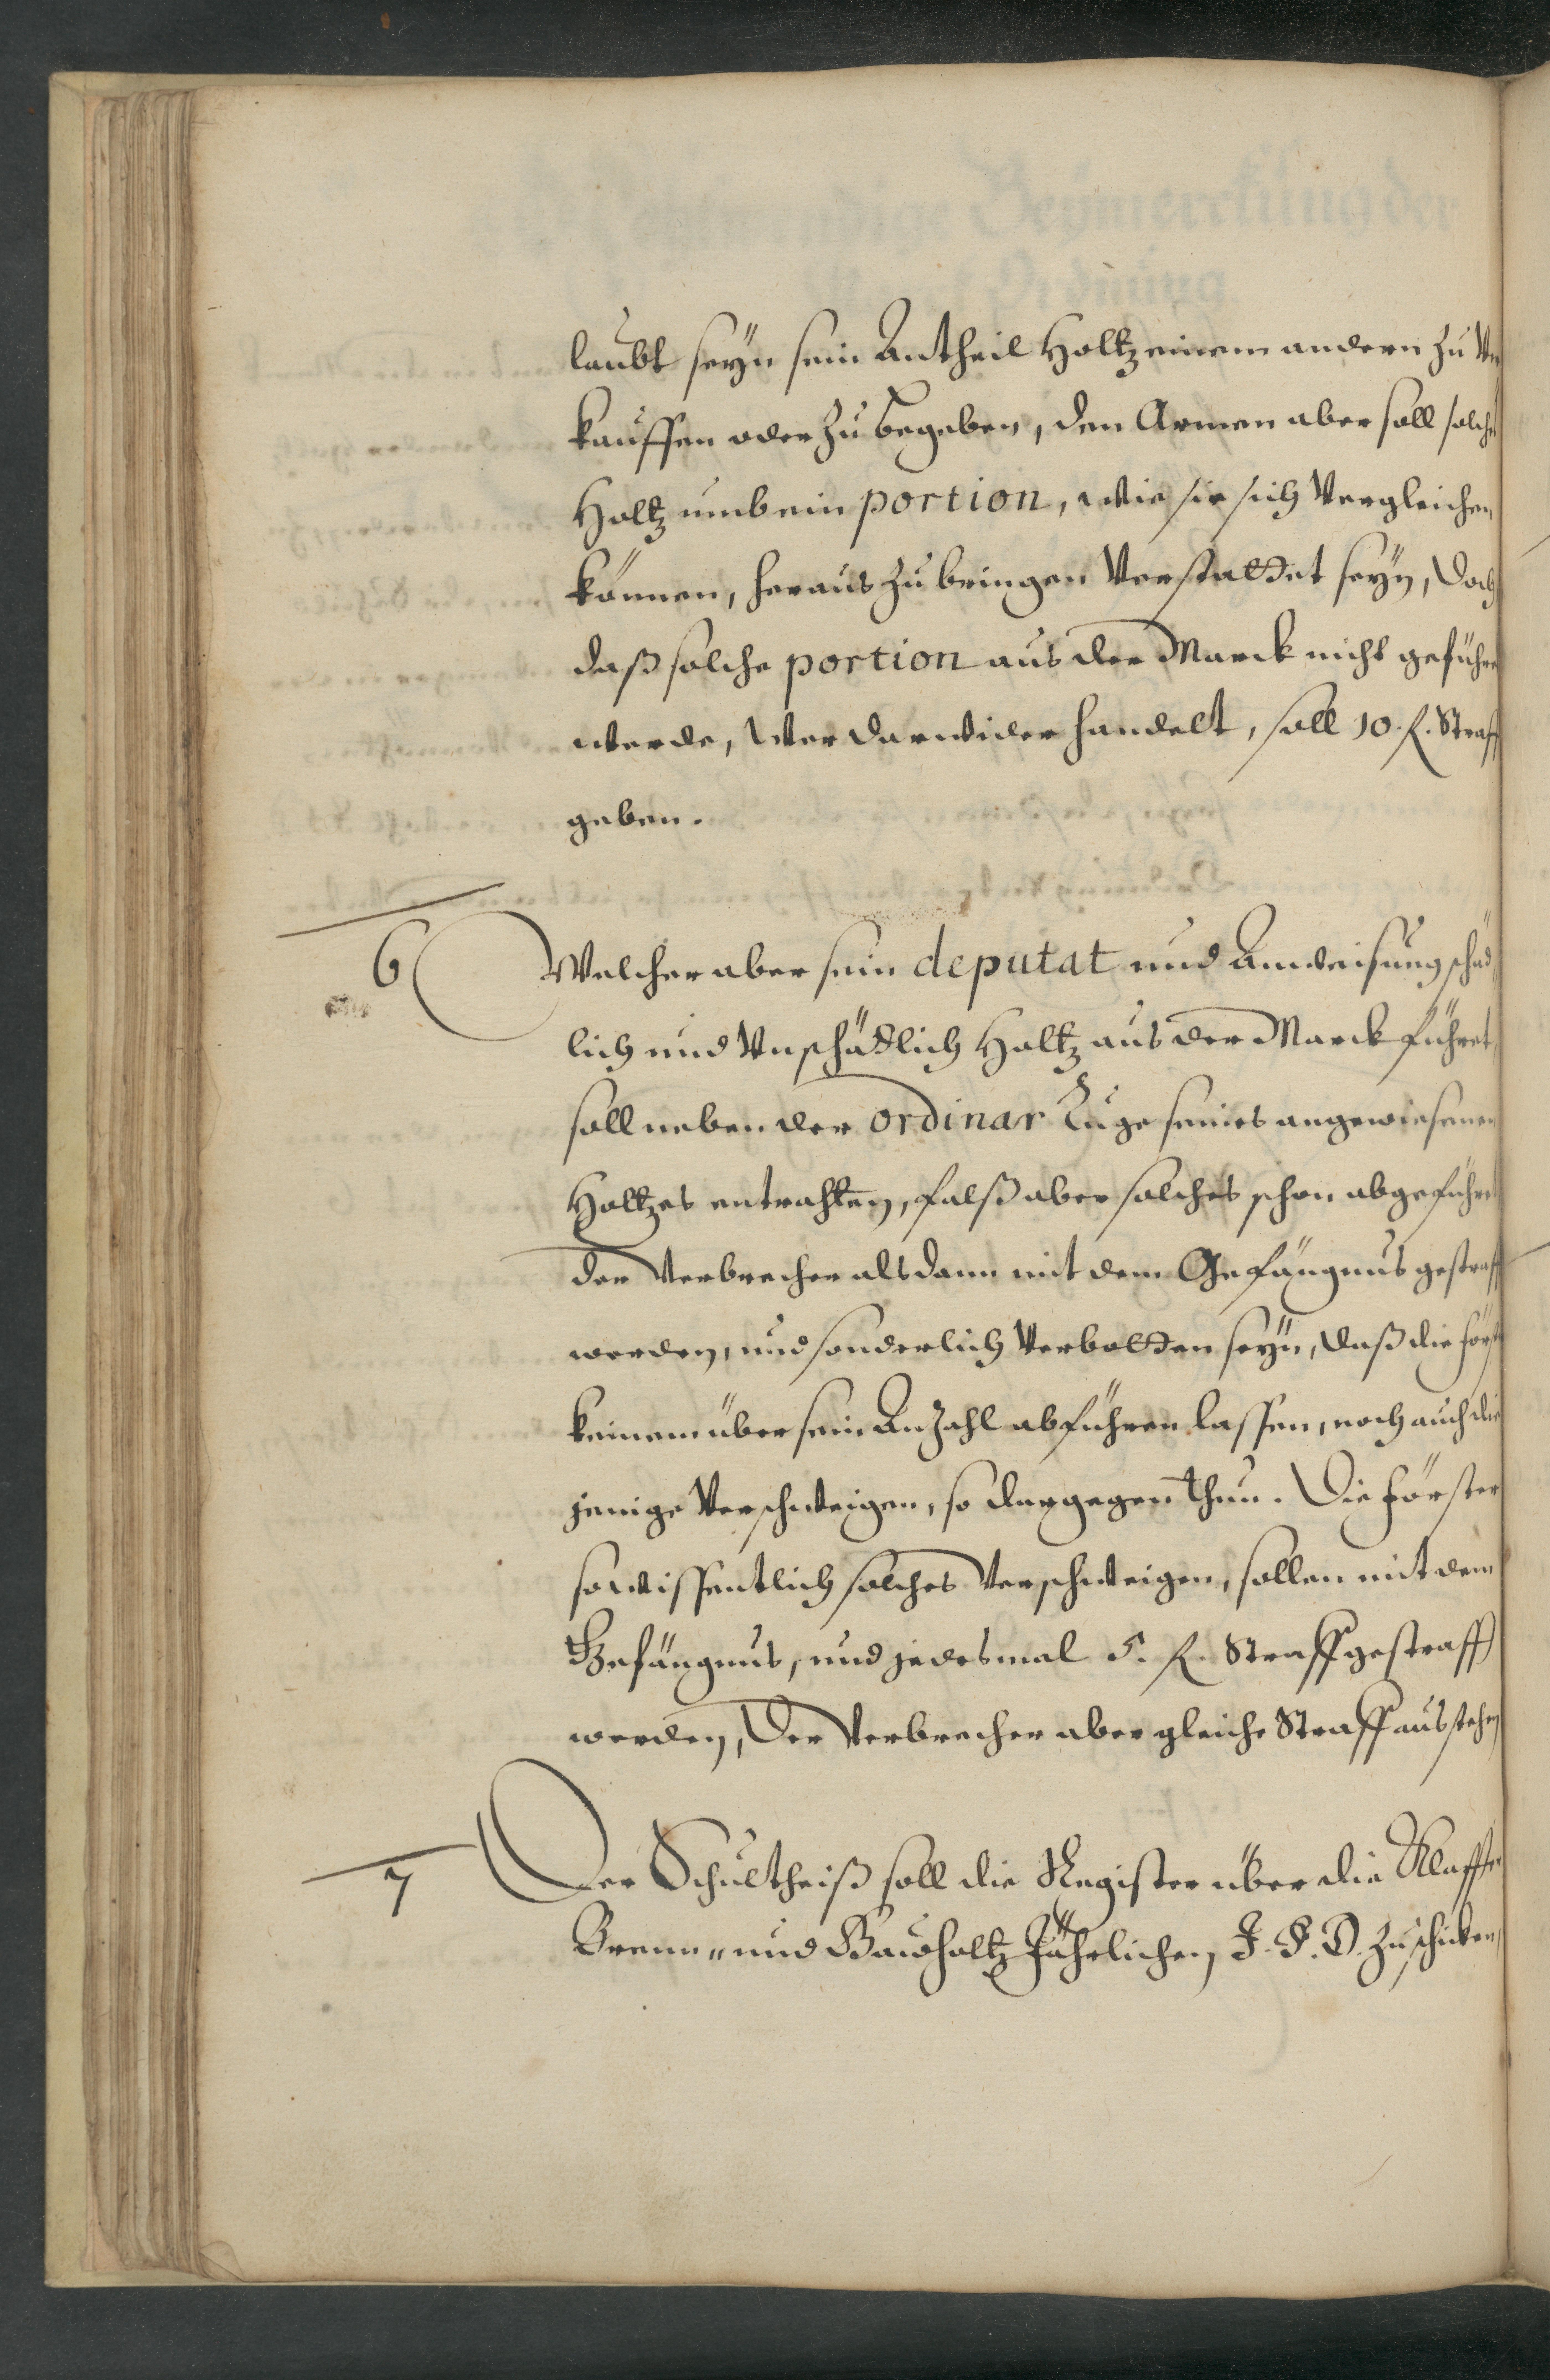 laubt seÿn sein Antheil Holtz einem andern zu Ver
kauffen oder zu begeben, den Armen aber soll solch
Holtz umb ein portion, wie sie sich Vergleichen
können, heraus zu bringen Verstattet seÿn, doch
daß solche portion aus der Marck nicht geführt
werde, Wer darwider handelt, soll 10. f. Straff
geben.
6 Welcher aber sein deputat und Anweisung schäd
lich und Unschädlich Holtz aus der Marck führet
soll neben der ordinar Ruge seines angewiesenen
Holtzes entrahten, falß aber solches schon abgeführt
der Verbrecher alsdann mit dem Gefängnus gestraff
werden, und sonderlich Verbotten seÿn, daß die först
keinem über sein Anzahl abführen lassen, noch auch die
jenige Verschweigen, so dargegen thun. Die förster
so wissentlich solches Verschweigen, sollen mit dem
Gefängnus, und jedesmal 5. f. Straff gestraff
werden, Der Verbrecher aber gleiche Straff ausstehen
7 Der Schultheiß soll die Register über die Klaffter
Brenn- und Bauholtz Jährlichen J. F. D. zuschicken,